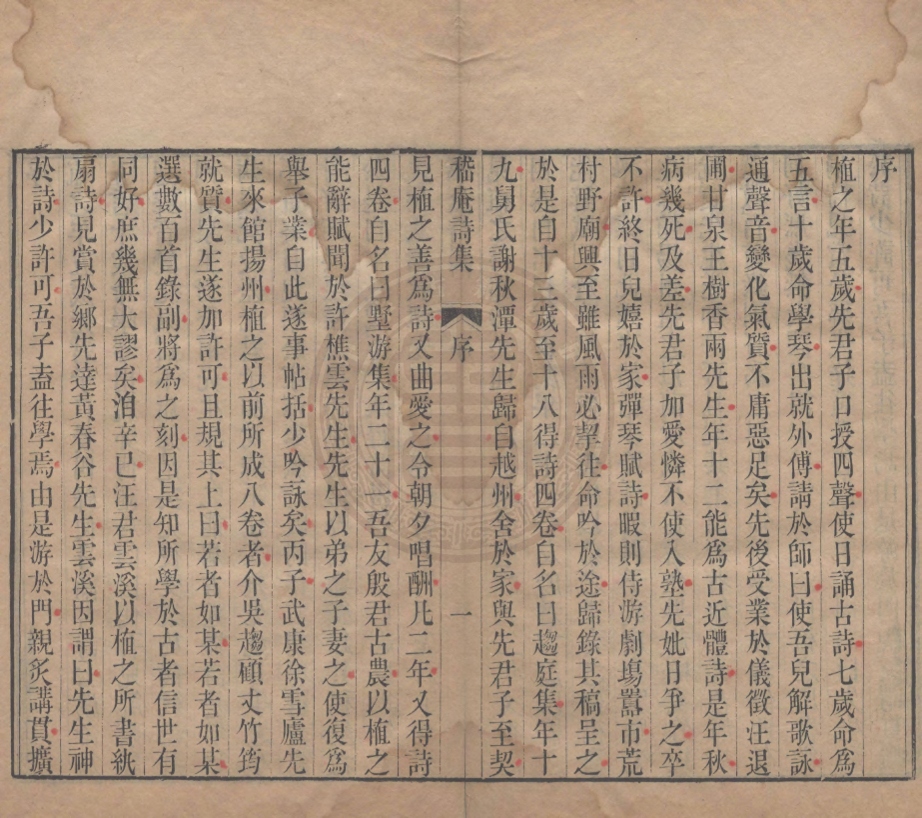 序
植之年五歲先君子口授四聲使日誦古詩七歲命爲
五言十歲命學琴出就外傅請於師曰使吾兒解歌詠
通聲音變化氣質不庸惡足矣先後受業於儀徵汪退
圃甘泉王樹香兩先生年十二能爲古近體詩是年秋
病幾死及差先君子加愛憐不使入塾先妣日爭之卒
不許終日兒嬉於家彈琴賦詩暇則侍游劇場嚣市荒
村野廟興至雖風雨必挈往命吟於途歸錄其稿呈之
於是自十三歲至十八得詩四卷自名曰趨庭集年十
九舅氏謝秋潭先生歸自越州舍於家與先君子至契
嵇庵詩集
序
一
見植之善爲詩又曲愛之令朝夕唱酬凡二年又得詩
四卷自名曰墅游集年二十一吾友殷君古農以植之
能辭賦聞於許樵雲先生先生以弟之子妻之使復爲
舉子業自此遂事帖括少吟詠矣丙子武康徐雪廬先
生來館揚州植之以前所成八卷者介吳趨顧丈竹筠
就質先生遂加許可且規其上曰若者如某若者如某
選數百首錄副將爲之刻因是知所學於古者信世有
同好庶幾無大謬矣洎辛巳汪君雲溪以植之所書紈
扇詩見賞於鄉先達黃春谷先生雲溪因謂曰先生神
於詩少許可吾子盍往學焉由是游於門親炙講貫擴